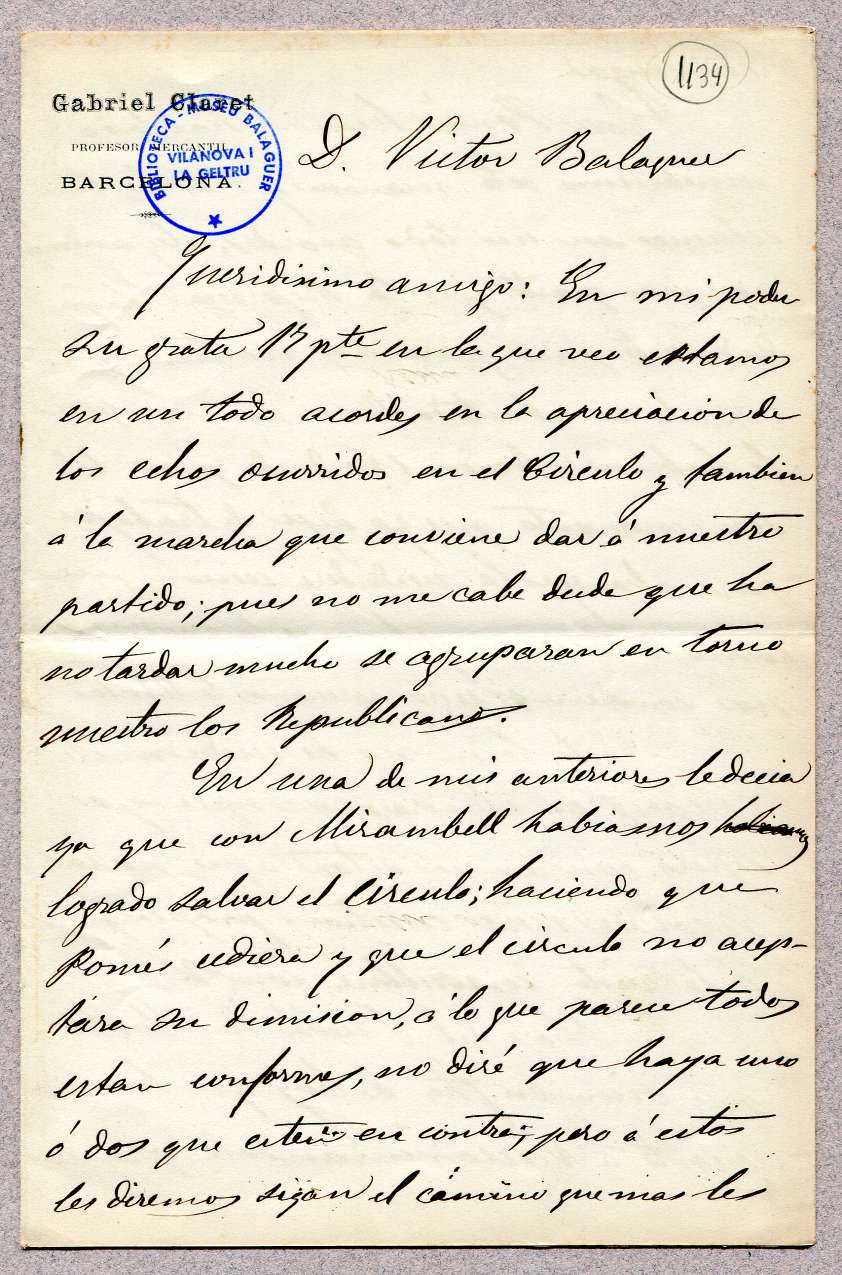 1134
Gabriel Claret
PROFESOR MERCANTIL
BARCELONA.
BIBLIOTECA - MUSEU BALAGUER
VILANOVA I
LA GELTRU
D. Victor Balaguer
Queridisimo amigo: En mi poder
su grata 17 pte en la que veo estamos
en un todo acordes en la apreciacion de
los echos ocurridos en el Circulo y tambien
á la marcha que conviene dar á nuestro
partido; pues no me cabe duda que ha
no tardar mucho se agruparan en torno
nuestro los Republicanos.
En una de mis anteriores le decia
ya que con Mirambell habiamos habiamos
logrado salvar el Circulo; haciendo que
Pomés cediera y que el circulo no acep-
tára su dimision, á lo que parece todos
estan conformes, no diré que haya uno
ó dos que esten en contra; pero á estos
les diremos sigan el cámino que mas les